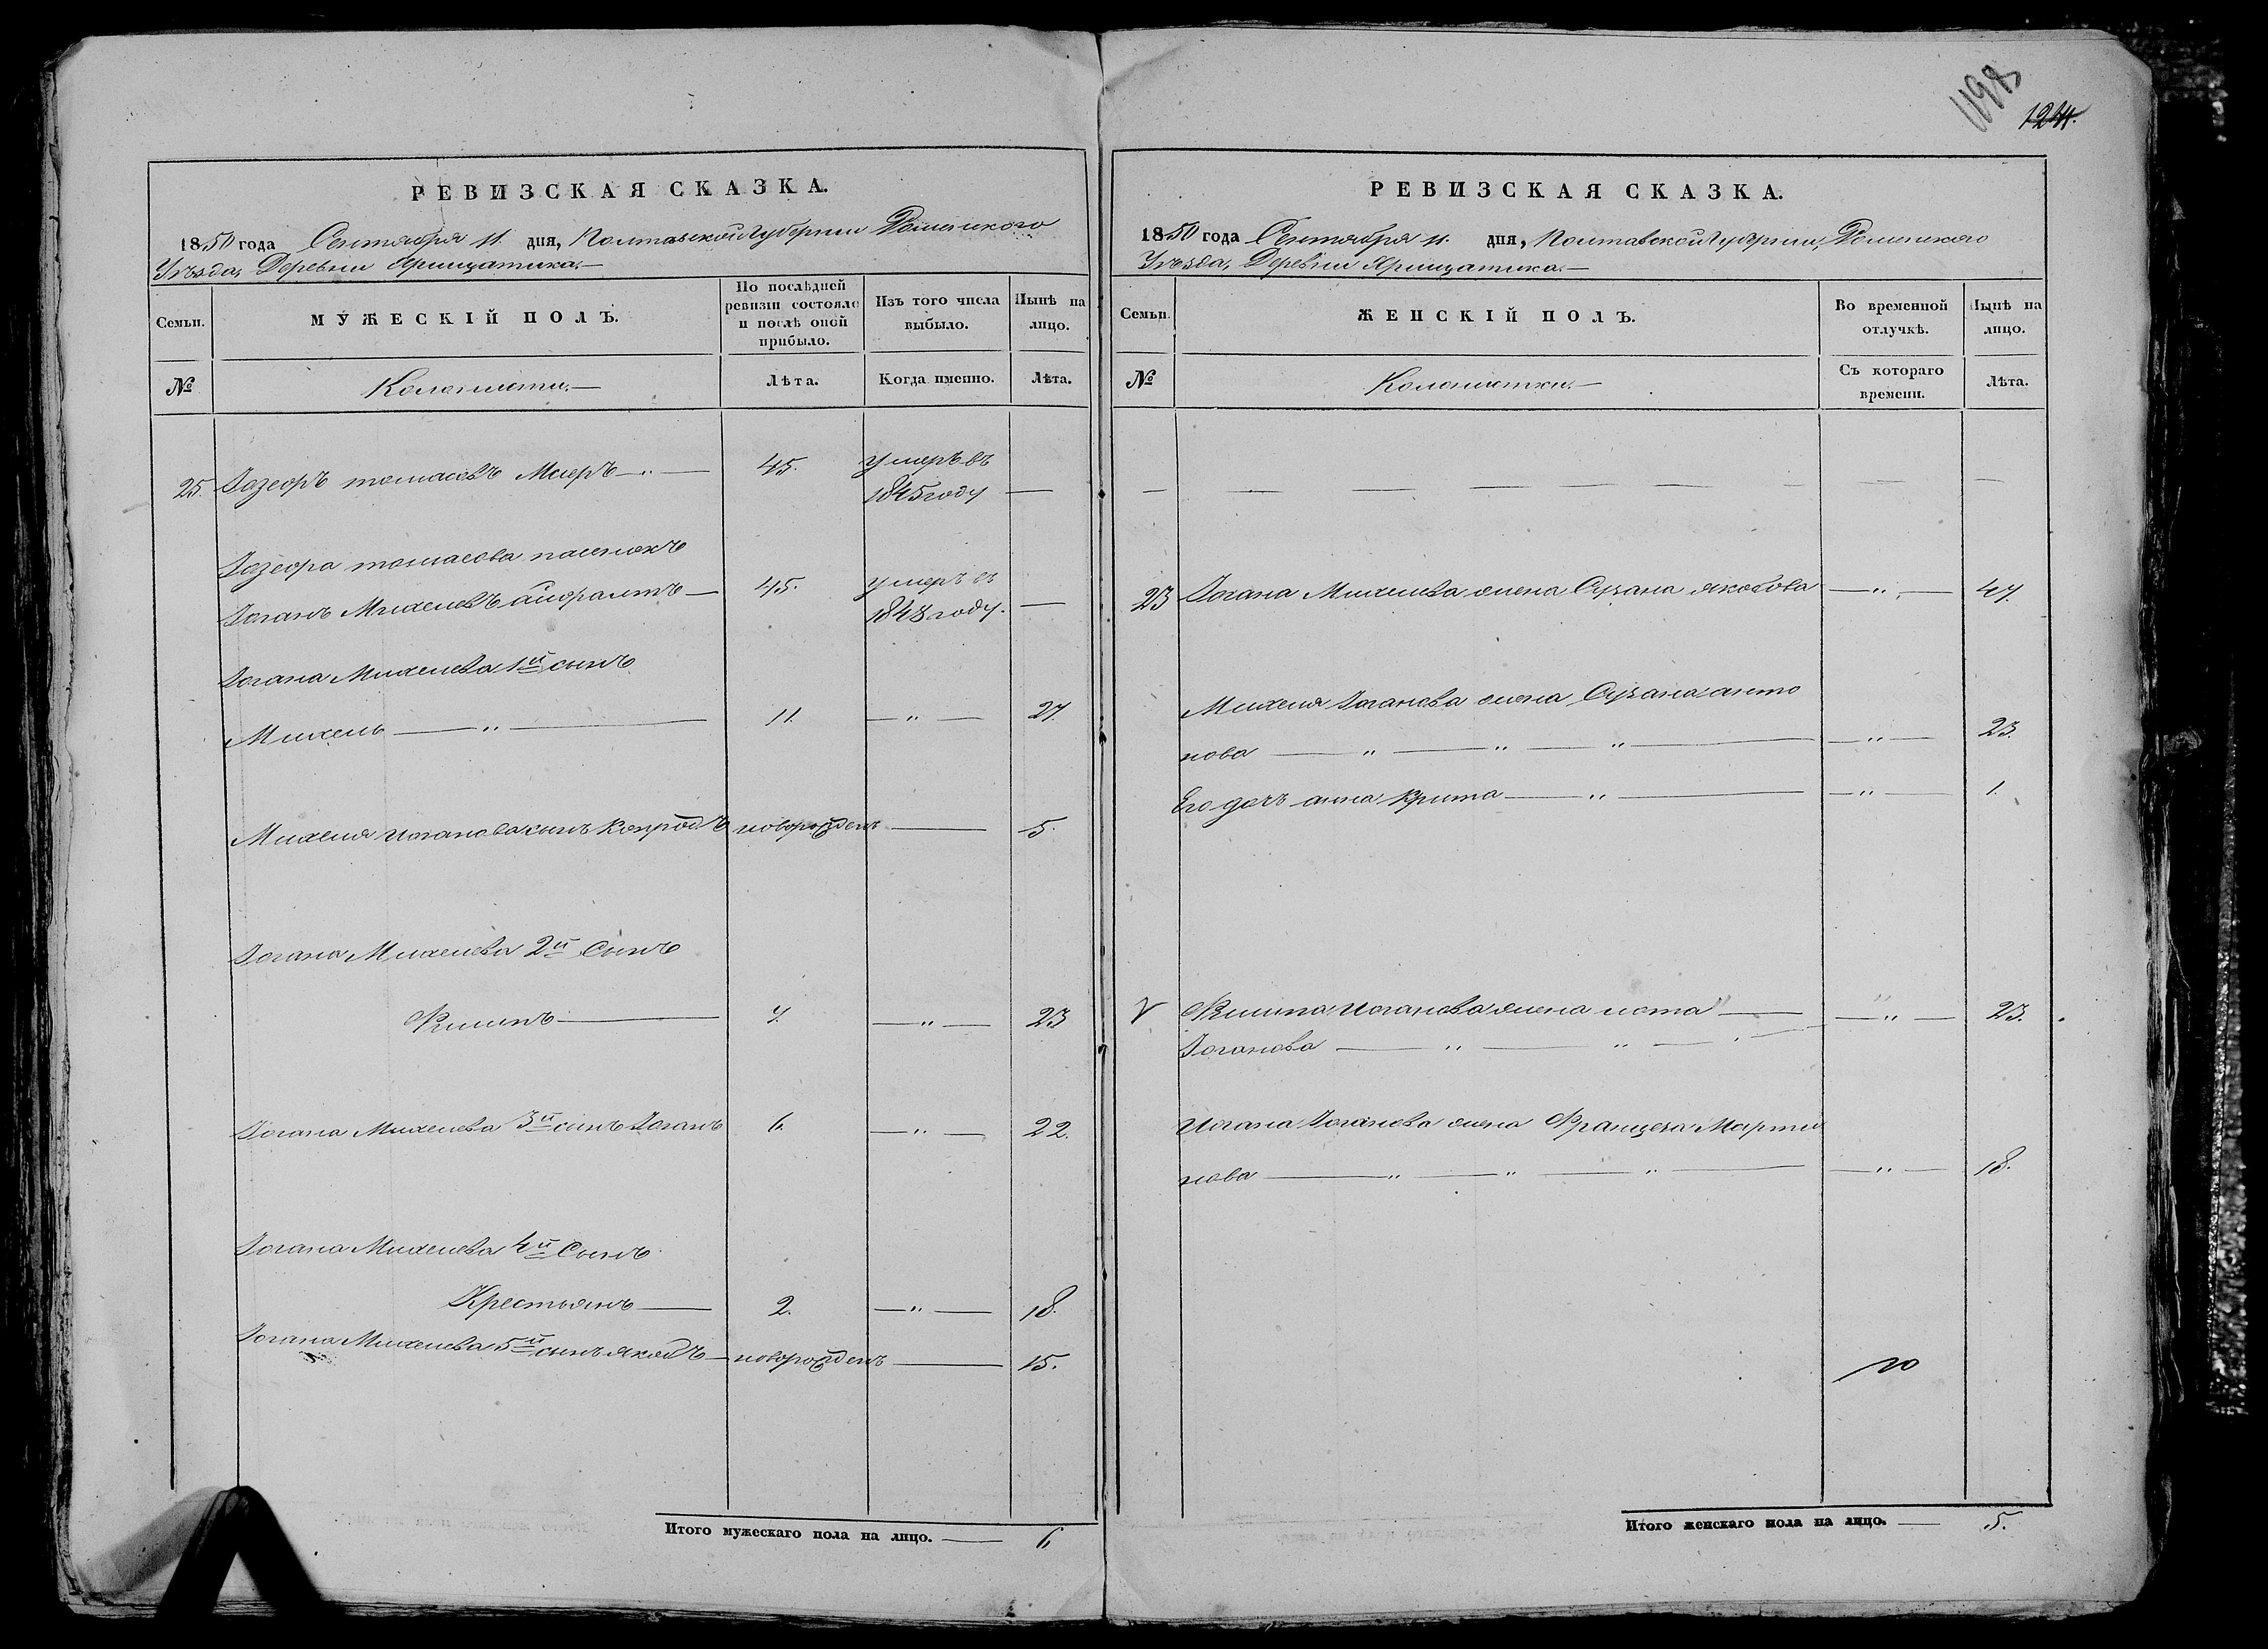 1198
124.
РЕВИЗСКАЯ СКАЗКА.
1850 года Сентября 11. дня, Полтавской Губернии Роменского
Уезда, Деревни
Семьи.
МУЖЕСКІЙ ПОЛЪ.
По послѣдней
ревизіи состояло
и послѣ оной
прибыло.
Изъ того числа
выбыло.
Нынѣ на
лицо.
№
Колонисты.
Лѣта.
Когда именно.
Лѣта.
25. томасовъ Меиръ 45. умеръ въ
1845 году
томасова пасенокъ
Іоганъ Михелевъ 45. умеръ въ
1848 году.
Іогана Михелева 1й сынъ
Михель 11. 27.
Михеля Иоганова сынъ Конрадъ новорожденъ 5.
Іогана Михелева 2й Сынъ
Филипъ 7. 23
Іогана Михелева 3й сынъ Іоганъ 6. 22.
Іогана Михелева 4й Сынъ
Крестьянъ 2. 18.
Іогана Михелева 5й сынъ якобъ новорожденъ 15.
Итого мужескаго пола на лицо. 6.
РЕВИЗСКАЯ СКАЗКА.
1850 года Сентября 11. дня, Полтавской Губернии, Роменского
Уезда, Деревни
Семьи.
ЖЕНСКІЙ ПОЛЪ.
Во временной
отлучкѣ.
Нынѣ на
лицо.
№
Колонистки.
Съ котораго
времени.
Лѣта.
23 Іогана Михелева жена Сузана якобова 47.
Михеля Іоганова жена Сузана анто
нова 23.
Его дочь анна Крита 1.
Филипа Иоганова жена 23.
Іоганова
Иогана Іоганова жена Францеза Марти
нова 18.
Итого женскаго пола на лицо. 5.